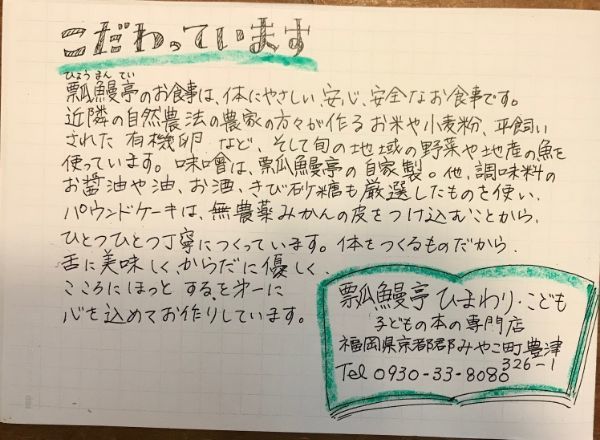 こだわっています
ひょうまんてい
瓢鰻亭のお食事は、体にやさしい、安心、安全なお食事です。
近隣の自然農法の農家の方々が作るお米や小麦粉、平飼い
された有機卵など、そして旬の地域の野菜や地産の魚を
使っています。味噌は、瓢鰻亭の自家製。他、調味料の
お醤油や油、お酒、きび砂糖も厳選したものを使い、
パウンドケーキは、無農薬みかんの皮をつけ込むことから、
ひとつひとつ丁寧につくっています。体をつくるものだから、
舌に美味しく、からだに優しく、
こころにほっとするを第一に
心を込めてお作りしています。
瓢鰻亭ひまわり・こども
子どもの本の専門店
福岡県京都郡みやこ町豊津
326-1
Tel 0930-33-8080